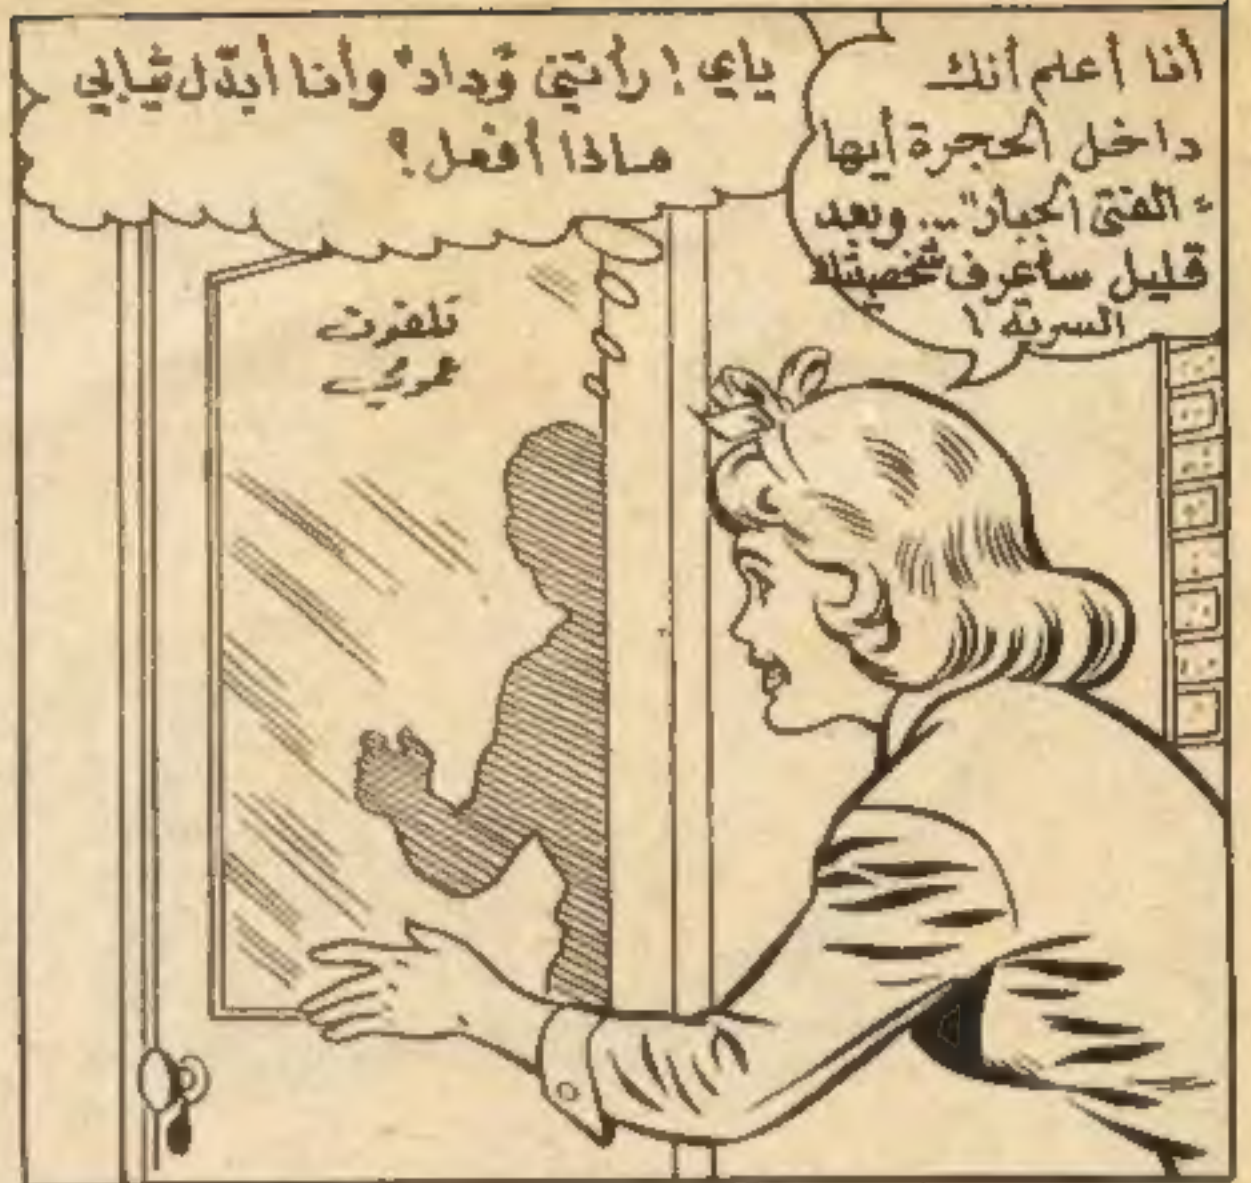 أنا أعلم أنك
داخل الحجرة أيها
"الفتى الجبار"... وبعد
قليل سأعرف شخصيتك
السرية !
ياي ! رأتني "وداد" وأنا أبدّل ثيابي
ماذا أفعل ؟
تلفون
عمومي